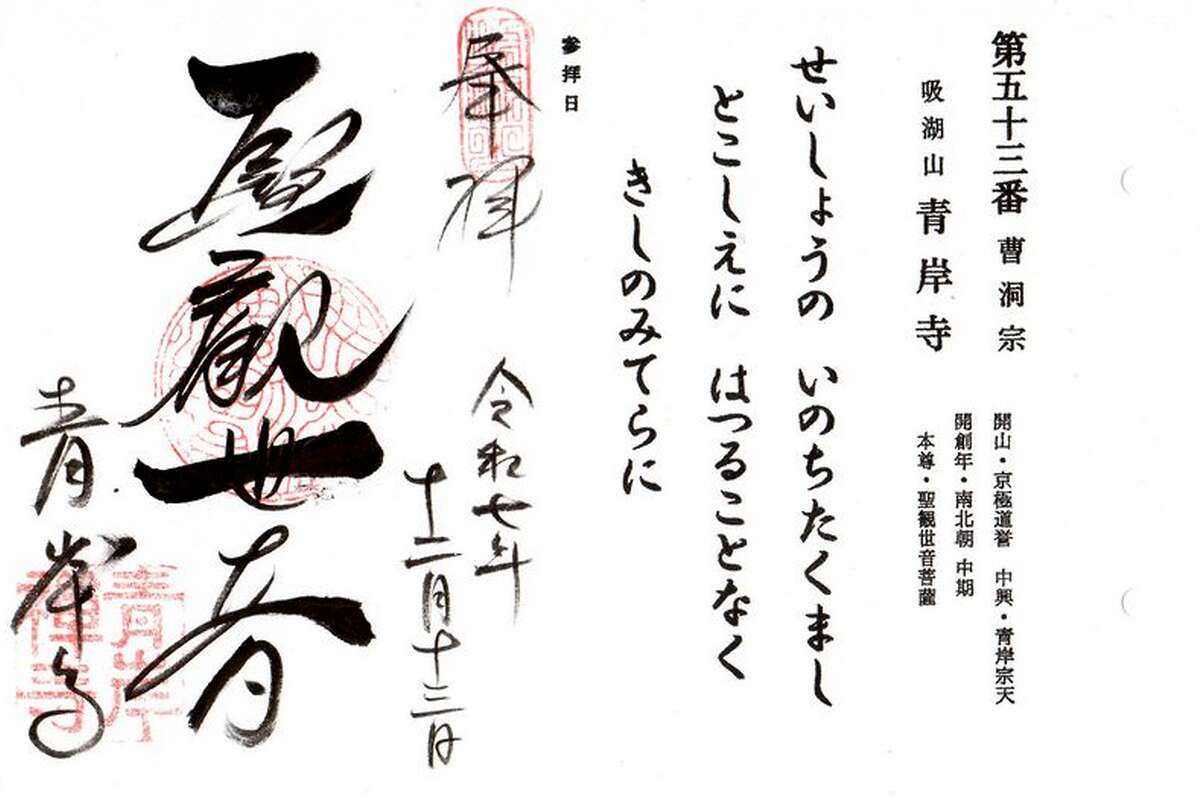 第五十三番 曹洞宗
吸湖山 青岸寺
開山・京極道誉 中興・青岸宗天
開創年・南北朝 中期
本尊・聖観世音菩薩
せいしょうの いのちたくまし
とこしえに はつることなく
きしのみてらに
参拝日
奉拝
令和七年
十二月十三日
聖観世音
青岸寺
青岸禅寺